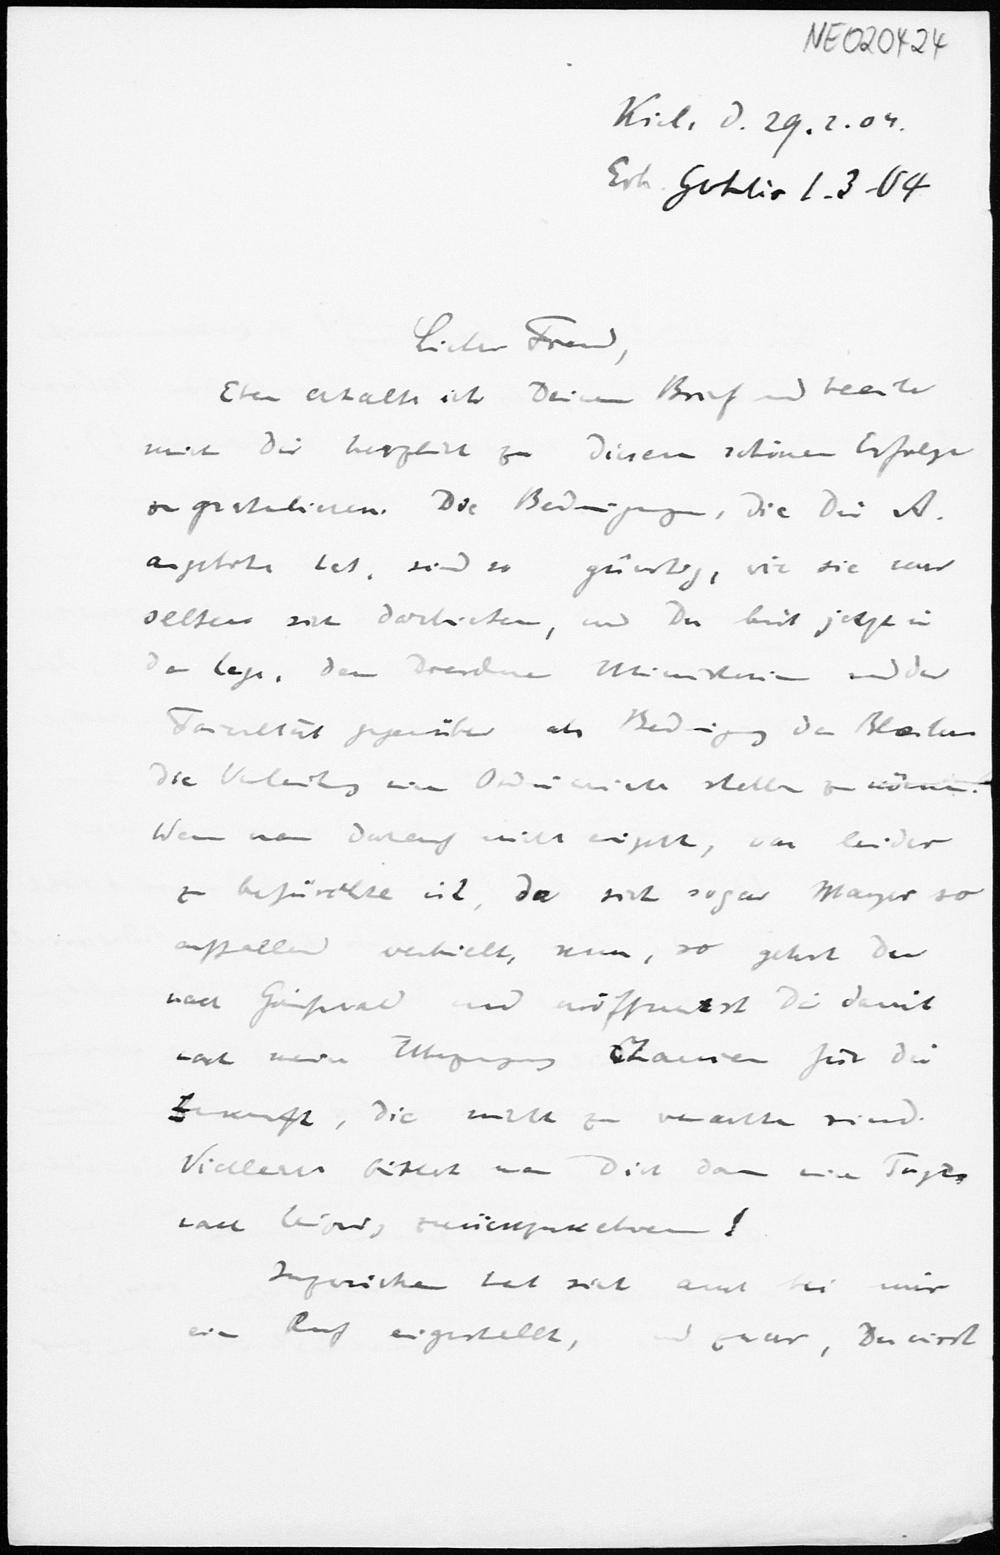 NE020424
Kiel, d. 29.2.04.
Erh. Gohlis 1.3-04
Lieber Freund,
Eben erhalte ich Deinen Brief und beeile
mich Dir herzlich zu diesem schönen Erfolge
zu gratulieren. Die Bedingungen, die Dir A.
angeboten hat, sind so günstig, wie sie nur
selten sich darbieten, und Du bist jetzt in
der Lage, dem Dresdner Ministerium und der
Facultät gegenüber als Bedingung des Bleibens
die Verleihung eines Ordinariats stellen zu können.
Wenn man darauf nicht eingeht, was leider
zu befürchten ist, da sich sogar Mayer so
auffallend verhielt, so gehst Du
nach Greifswald und eröffnest Dir damit
nach meiner Überzeugung Chancen für die
Zukunft, die nicht zu verachten sind.
Vielleicht bittet man Dich dann eines Tages
nach Leipzig zurückzukehren!
Inzwischen hat sich auch bei mir
ein Ruf eingestellt, und zwar, Du wirst